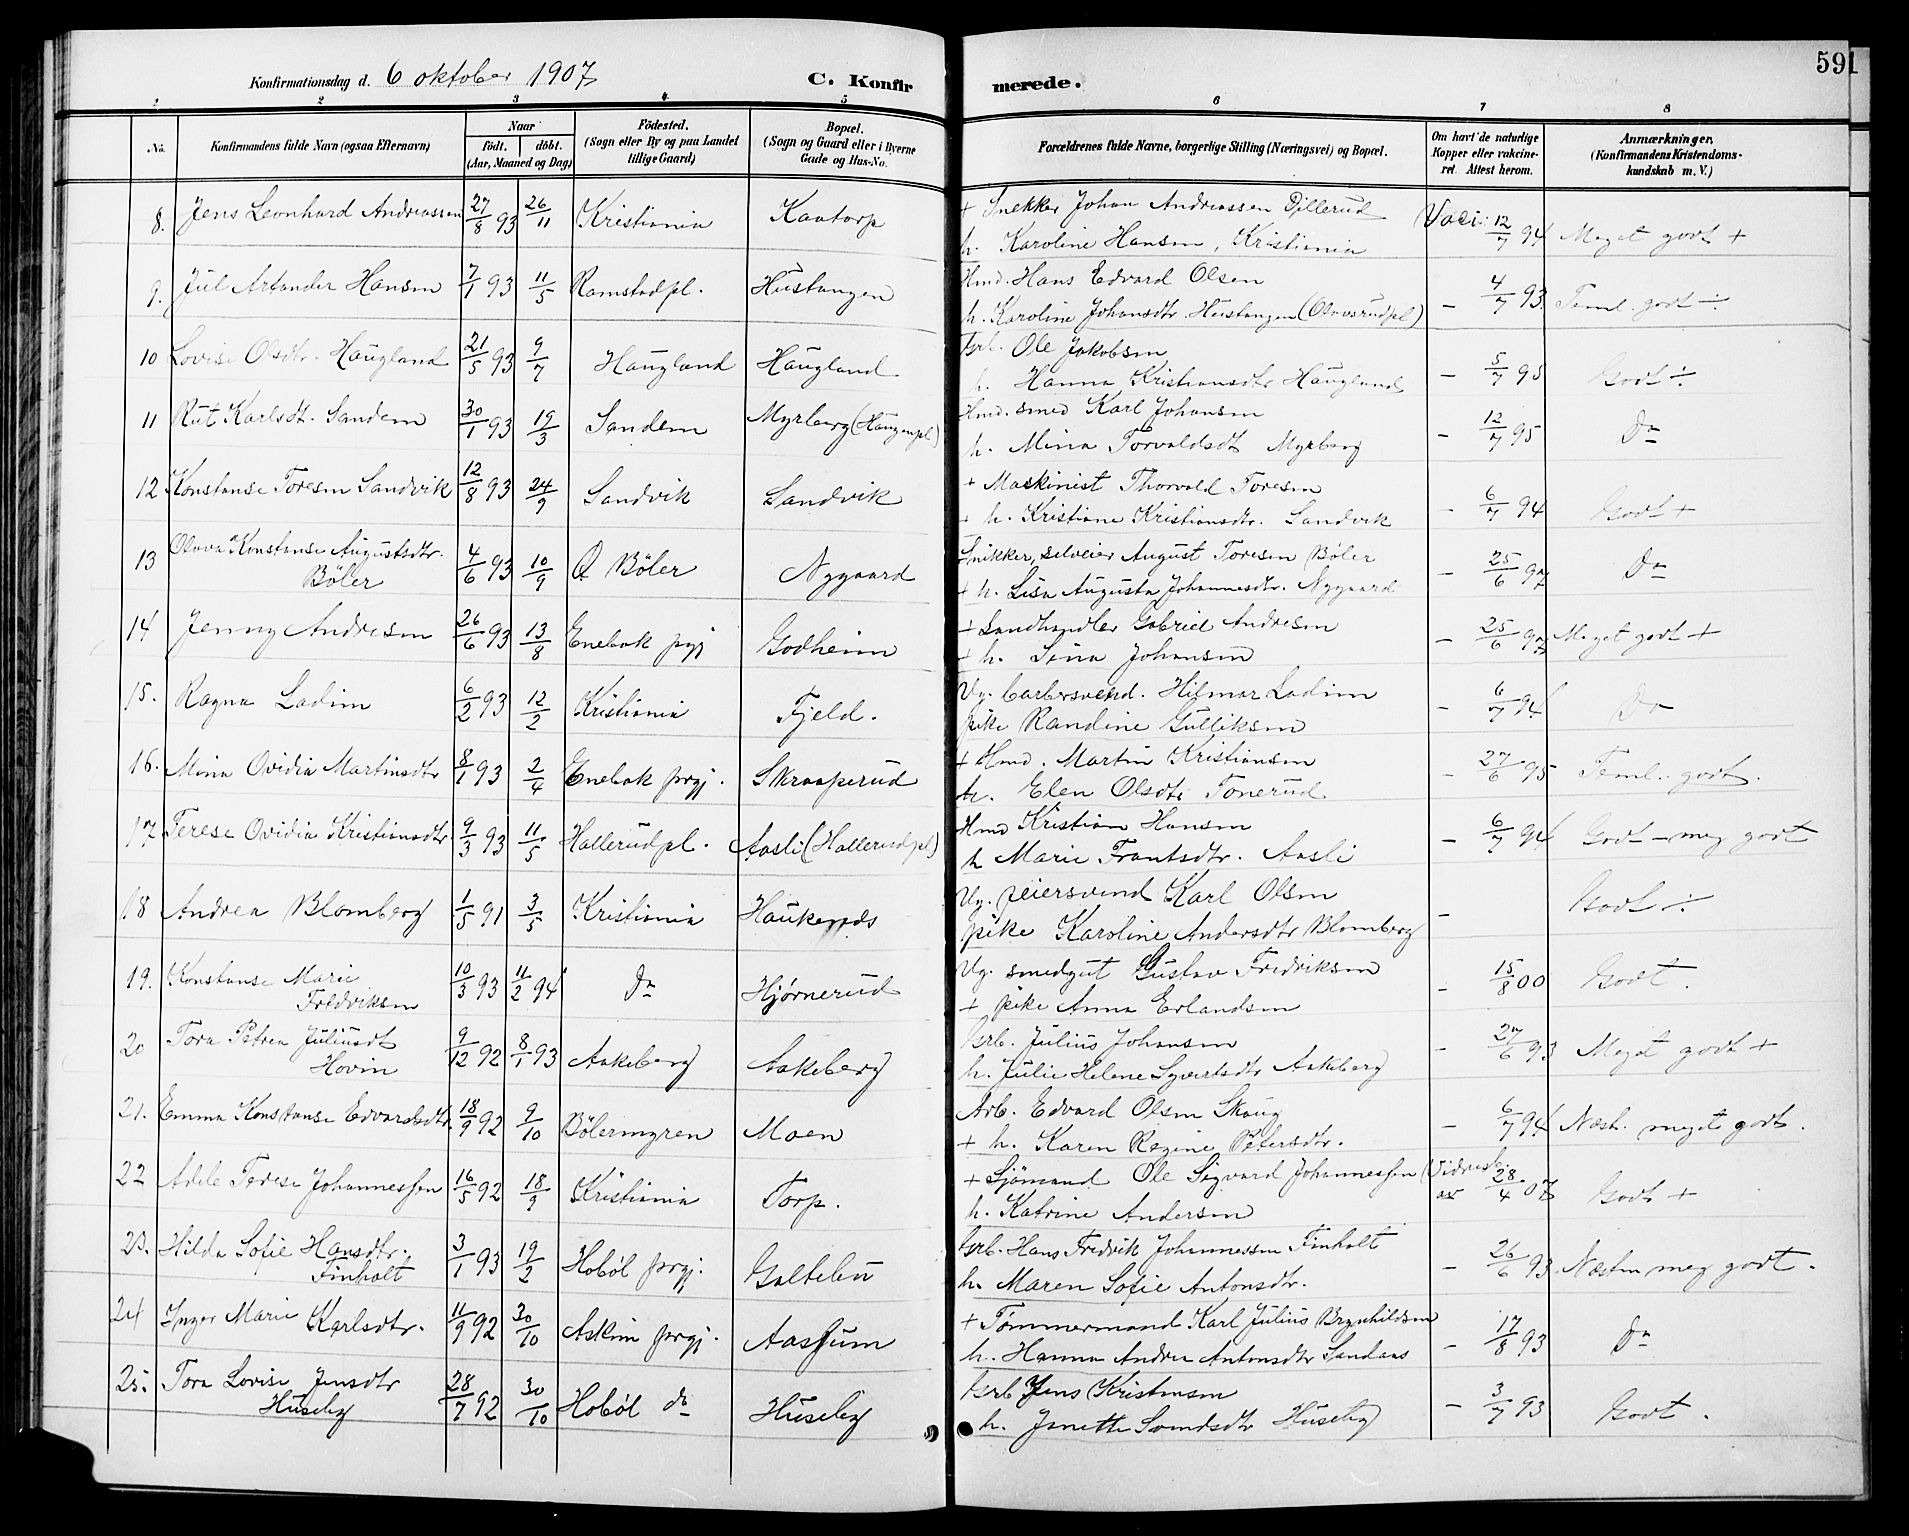 591
Konfirmationsdag d. 6 oktober 1907 C. Konfirmerede.
1 2 3 4 5 6 7 8
No. Konfirmandens fulde Navn (ogsaa Efternavn) Naar födt. döbt. (Aar, Maaned og Dag) Födested. (Sogn eller By og paa Landet tillige Gaard) Bopæl. (Sogn og Gaard eller i Byerne Gade og Hus-No. Forældrenes fulde Navne, borgerlige Stilling (Næringsvei) og Bopæl. Om havt de naturlige Kopper eller vakcineret. Attest herom. Anmærkninger, (Konfirmandens Kristendomskundskab m. V.)
8. Jens Leonhard Andreassen 27/8 93 26/11 Kristiania Kaatorp + Snekker Johan Andreassen Dillerud Vacc: 12/7 94 Meget godt +
h. Karoline Hansen, Kristiania
9. Jul Artander Hansen 7/1 93 11/5 Ramstadpl. Hustangen Hmd. Hans Edvard Olsen – 4/7 93. Teml. godt ÷
h. Karoline Johansdtr. Hustangen (Olavsrudpl)
10 Lovise Olsdtr. Haugland 21/5 93 9/7 Haugland Haugland Grb. Ole Jakobsen – 5/7 95 Godt ÷
h. Hanna Kristiansdtr Haugland
11 Rut Karlsdt. Sandem 30/1 93 19/3 Sandem Myrberg (Haugenpl) Hmd. smed Karl Johansen – 12/7 95 Do
h. Mina Torvaldsdt Myrberg
12 Konstanse Toresen Sandvik 12/8 93 24/9 Sandvik Sandvik + Maskinist Thorvald Toresen – 6/7 94 Godt +
+ h. Kristiane Kristiansdtr. Sandvik
13 Olava Konstanse Augustsdtr. Böler 4/6 93 10/9 Ö Böler Nygaard Snikker, selveier August Toresen Bøler – 25/6 97 Do
+ h. Lisa Augusta Johannesdtr. Nygaard
14 Jenny Andresen 26/6 93 13/8 Enebak prgj Godheim + Landhandler Gabriel Andresen – 25/6 97 Meget godt +
+ h. Lina Johansen
15. Ragna Ladim 6/2 93 12/2 Kristiania Fjeld. Ug. barbersvend. Hilmar Ladim – 6/7 94 Do
pike Randine Gulliksen
16. Mina Ovidia Martinsdtr 8/1 93 2/4 Enebak prgj. Skraaperud + Hmd. Martin Kristiansen – 27/6 95 Teml. godt.
h. Elen Olsdtr Tonerud
17 Terese Ovidia Kristiansdtr. 9/3 93 11/5 Hallerudpl. Aasli (Hallerudpl) Hmd Kristian Hansen – 6/7 94 Godt – meg godt
h Marie Frantsdtr. Aasli
18 Andrea Blomberg 1/5 91 3/5 Kristiania Haukenæs Ug. feiersvend Karl Olsen – Godt ÷
pike Karoline Andersdtr Blomberg
19. Konstanse Marie Fredriksen 10/3 93 11/2 94 Do Hjørnerud Ug. smedgut Gustav Fredriksen – 15/8 00 Godt.
+ pike Anna Erlandsen
20 Tora Petrea Juliusdt Hovin 9/12 92 8/1 93 Aakeberg Aakeberg Grb. Julius Johansen – 27/6 93 Meget godt +
h. Julie Helene Syvertsdtr Aakeberg
21. Emma Konstanse Edvardsdtr. 18/9 92 9/10 Bölermyren Moen Arb. Edvard Olsen Skaug – 6/7 94 Næst. meget godt.
+ h. Karen Regine Petersdtr.
22 Adele Terese Johannessen 16/5 92 18/9 Kristiania Torp. + Sjömand Ole Sigvard Johannessen 28/4 07 Godt +
h. Katrine Andersen
23. Hilda Sofie Hansdtr. Finholt 3/1 93 19/2 Hobøl prgj. Galtebu Grb. Hans Fredrik Johannessen Finholt – 26/6 93. Næsten meg godt.
h. Maren Sofie Antonsdtr.
24 Inger Marie Karlsdtr. 11/9 92 30/10 Askim prgj. Aasfum + Tømmermand Karl Julius Brynhildsen – 17/8 93 Do
h. Hanna Andrea Antonsdtr Sandaas
25. Tora Lovise Jensdtr Huseby 28/7 92 30/10 Hobøl do Huseby Grb Jens Kristensen – 3/7 93 Godt.
h. Janette Svendsdtr Huseby